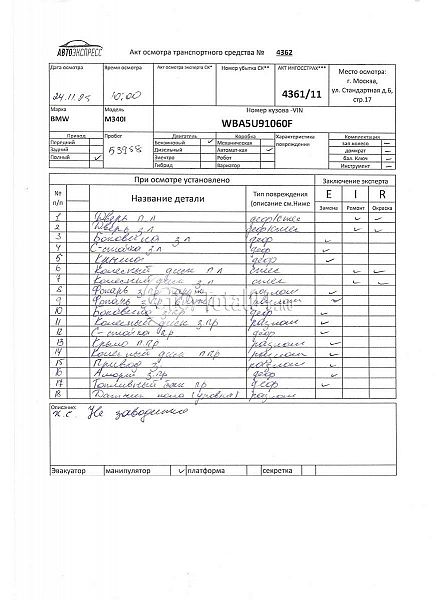 АВТОЭКСПРЕСС
Акт осмотра транспортного средства № 4362
Дата осмотра Время осмотра Акт осмотра эксперта СК* Номер убытка СК** АКТ ИНГОССТРАХ*** Место осмотра:
г. Москва,
ул. Стандартная д.6,
стр.17
10:00 4361/11
Марка Модель Номер кузова -VIN
BMW M340I WBA5U91060F
Привод Пробег Двигатель Коробка Характеристика повреждений Комплектация
Передний Бензиновый Механическая зап колесо
Задний Дизельный Автомат-кая домкрат
Полный Электро Робот бал. Ключ
Гибрид Вариатор Инструмент
При осмотре установлено Заключение эксперта
№ п/п Название детали Тип повреждения (описание см.Ниже E I R
Замена Ремонт Окраска
1 Дверь п л
2 Дверь з л
3 Боковина з л деф
4 Стойка з л деф
5 деф
6 Колесный диск п л
7 Колесный диск з л
8 Фонарь з пр разлом
9 Фонарь з пр разлом
10 Боковина з пр деф
11 Колесный диск з пр разлом
12 С-стойка з пр деф
13 Крыло п пр разлом
14 Колесный диск п пр разлом
15 Привод з разлом
16 Аморт з пр деф
17 Топливный бак пр деф
18 Датчик разлом
Описание:
Не заводится
Эвакуатор манипулятор платформа секретка